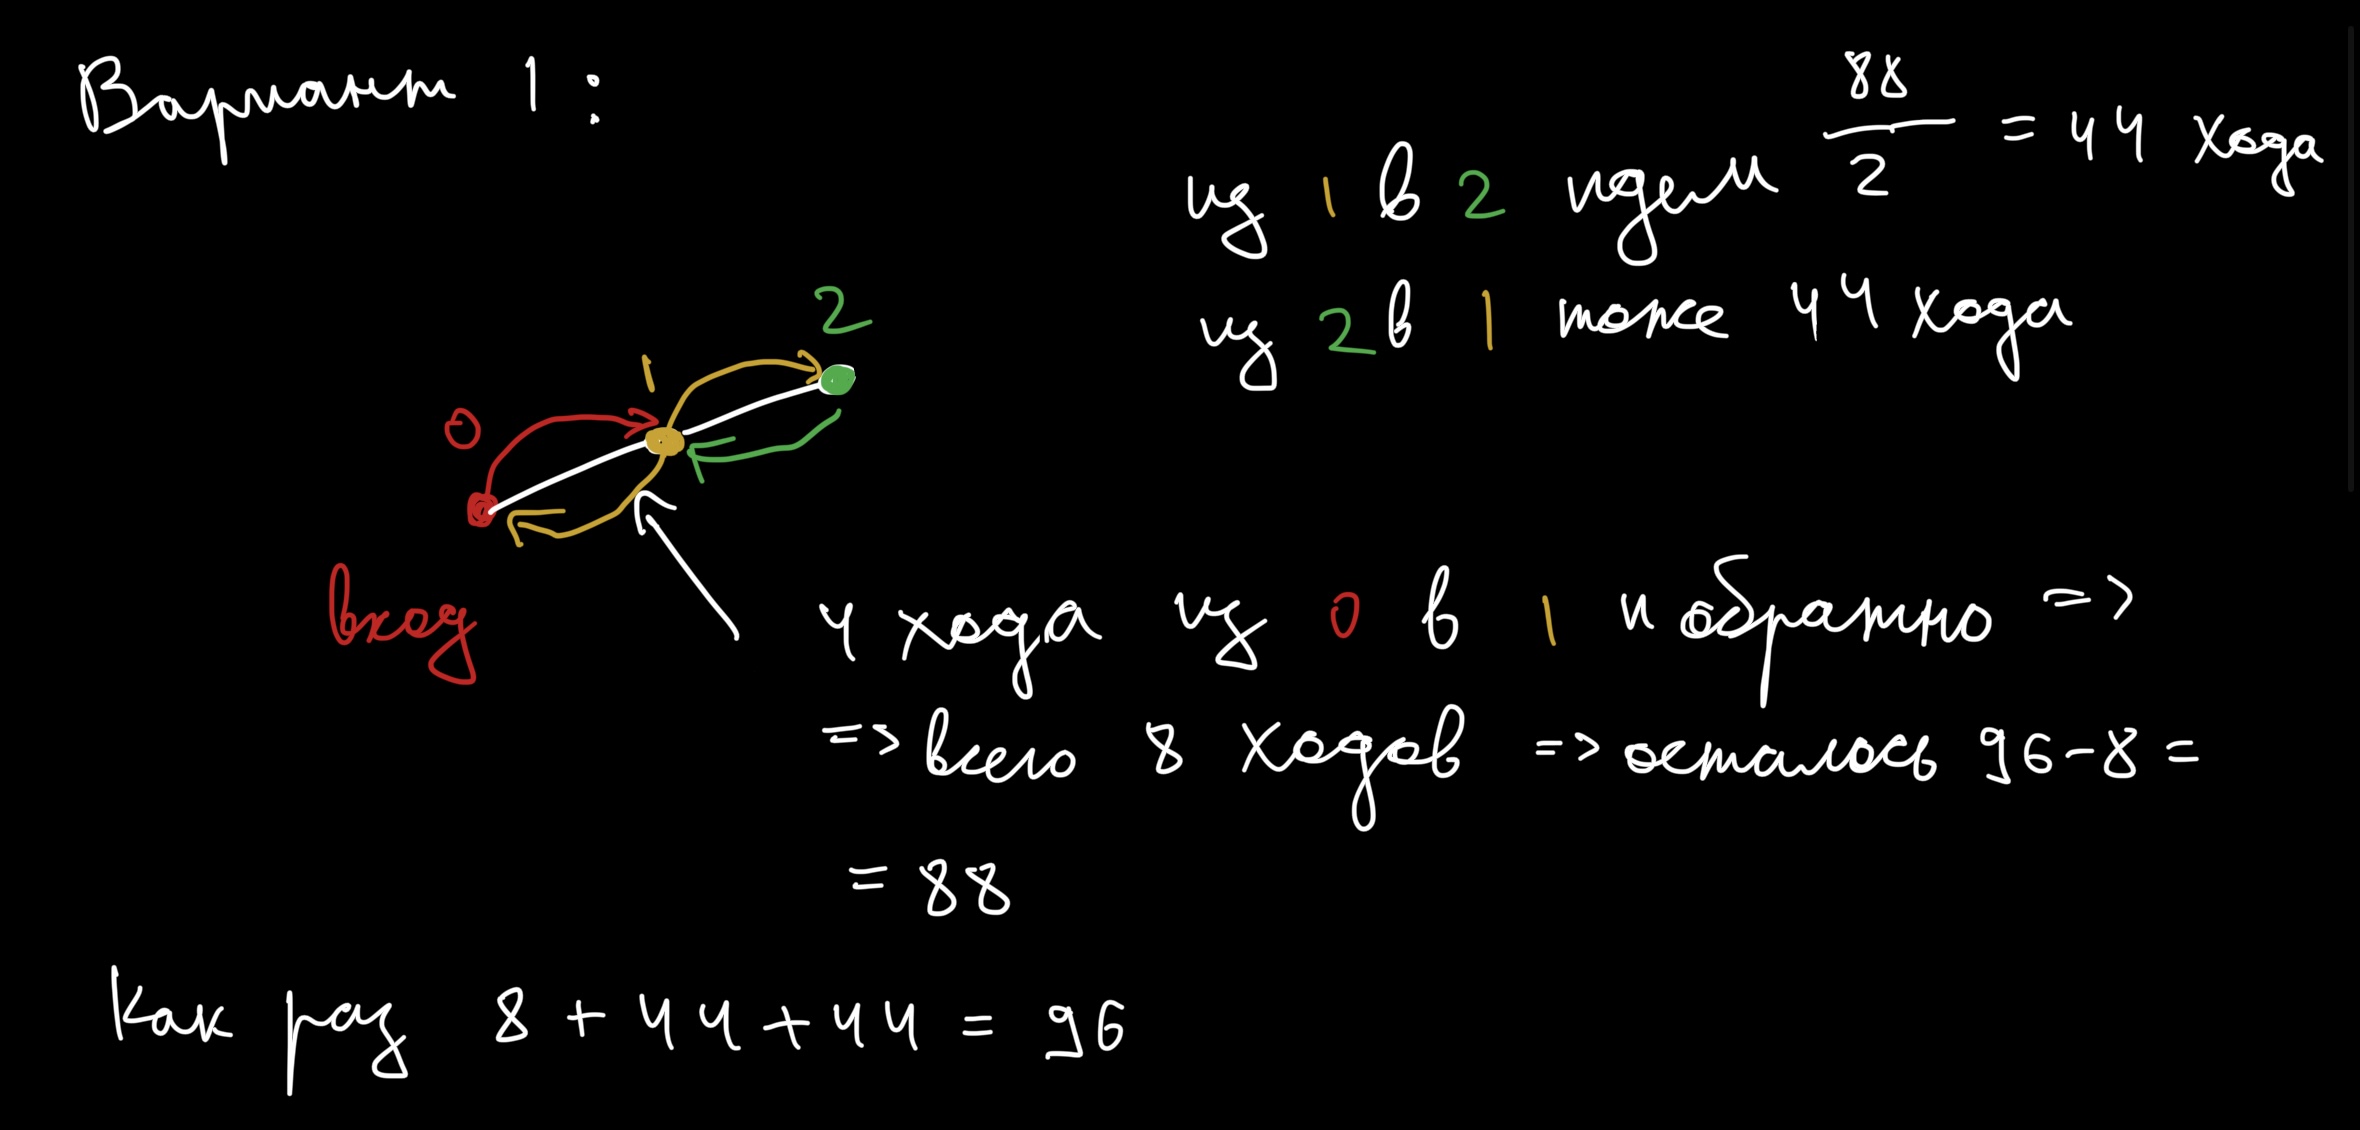 Вариант 1:
из 1 в 2 идем 88/2 = 44 хода
из 2 в 1 тоже 44 хода
2
1
0
вход
4 хода из 0 в 1 и обратно =>
=> всего 8 ходов => осталось 96-8=
= 88
Как раз 8 + 44 + 44 = 96